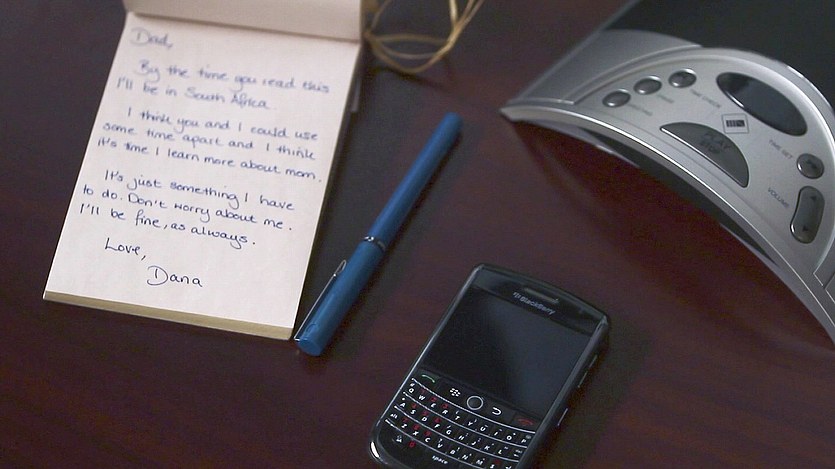 Dad,
By the time you read this
I'll be in South Africa.
I think you and I could use
some time apart and I think
it's time I learn more about mom.
It's just something I have
to do. Don't worry about me.
I'll be fine, as always.
Love,
Dana
TIME SET
VOLUME
BlackBerry
Q W E R T Y U I O P
A S D F G H J K L
Z X C V B N M
space